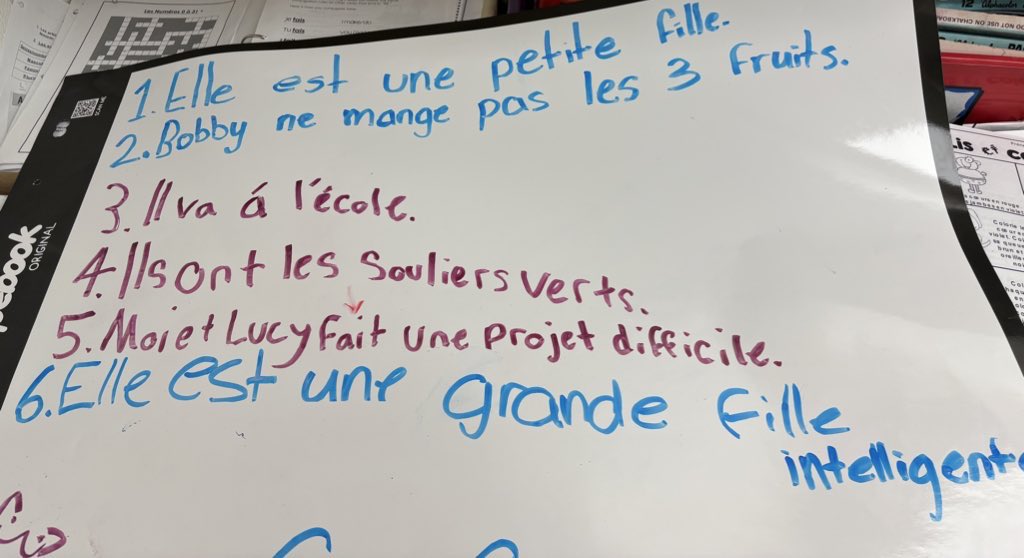 Les Numéros 0 à 21 !
je fais
Tu fais
SCAN ME
ORIGINAL
1. Elle est une petite fille.
2. Bobby ne mange pas les 3 fruits.
3. Il va á l'école.
4. Ils ont les souliers verts.
5. Moi et Lucy fait une projet difficile.
6. Elle est une grande fille
intelligente
Lis et c